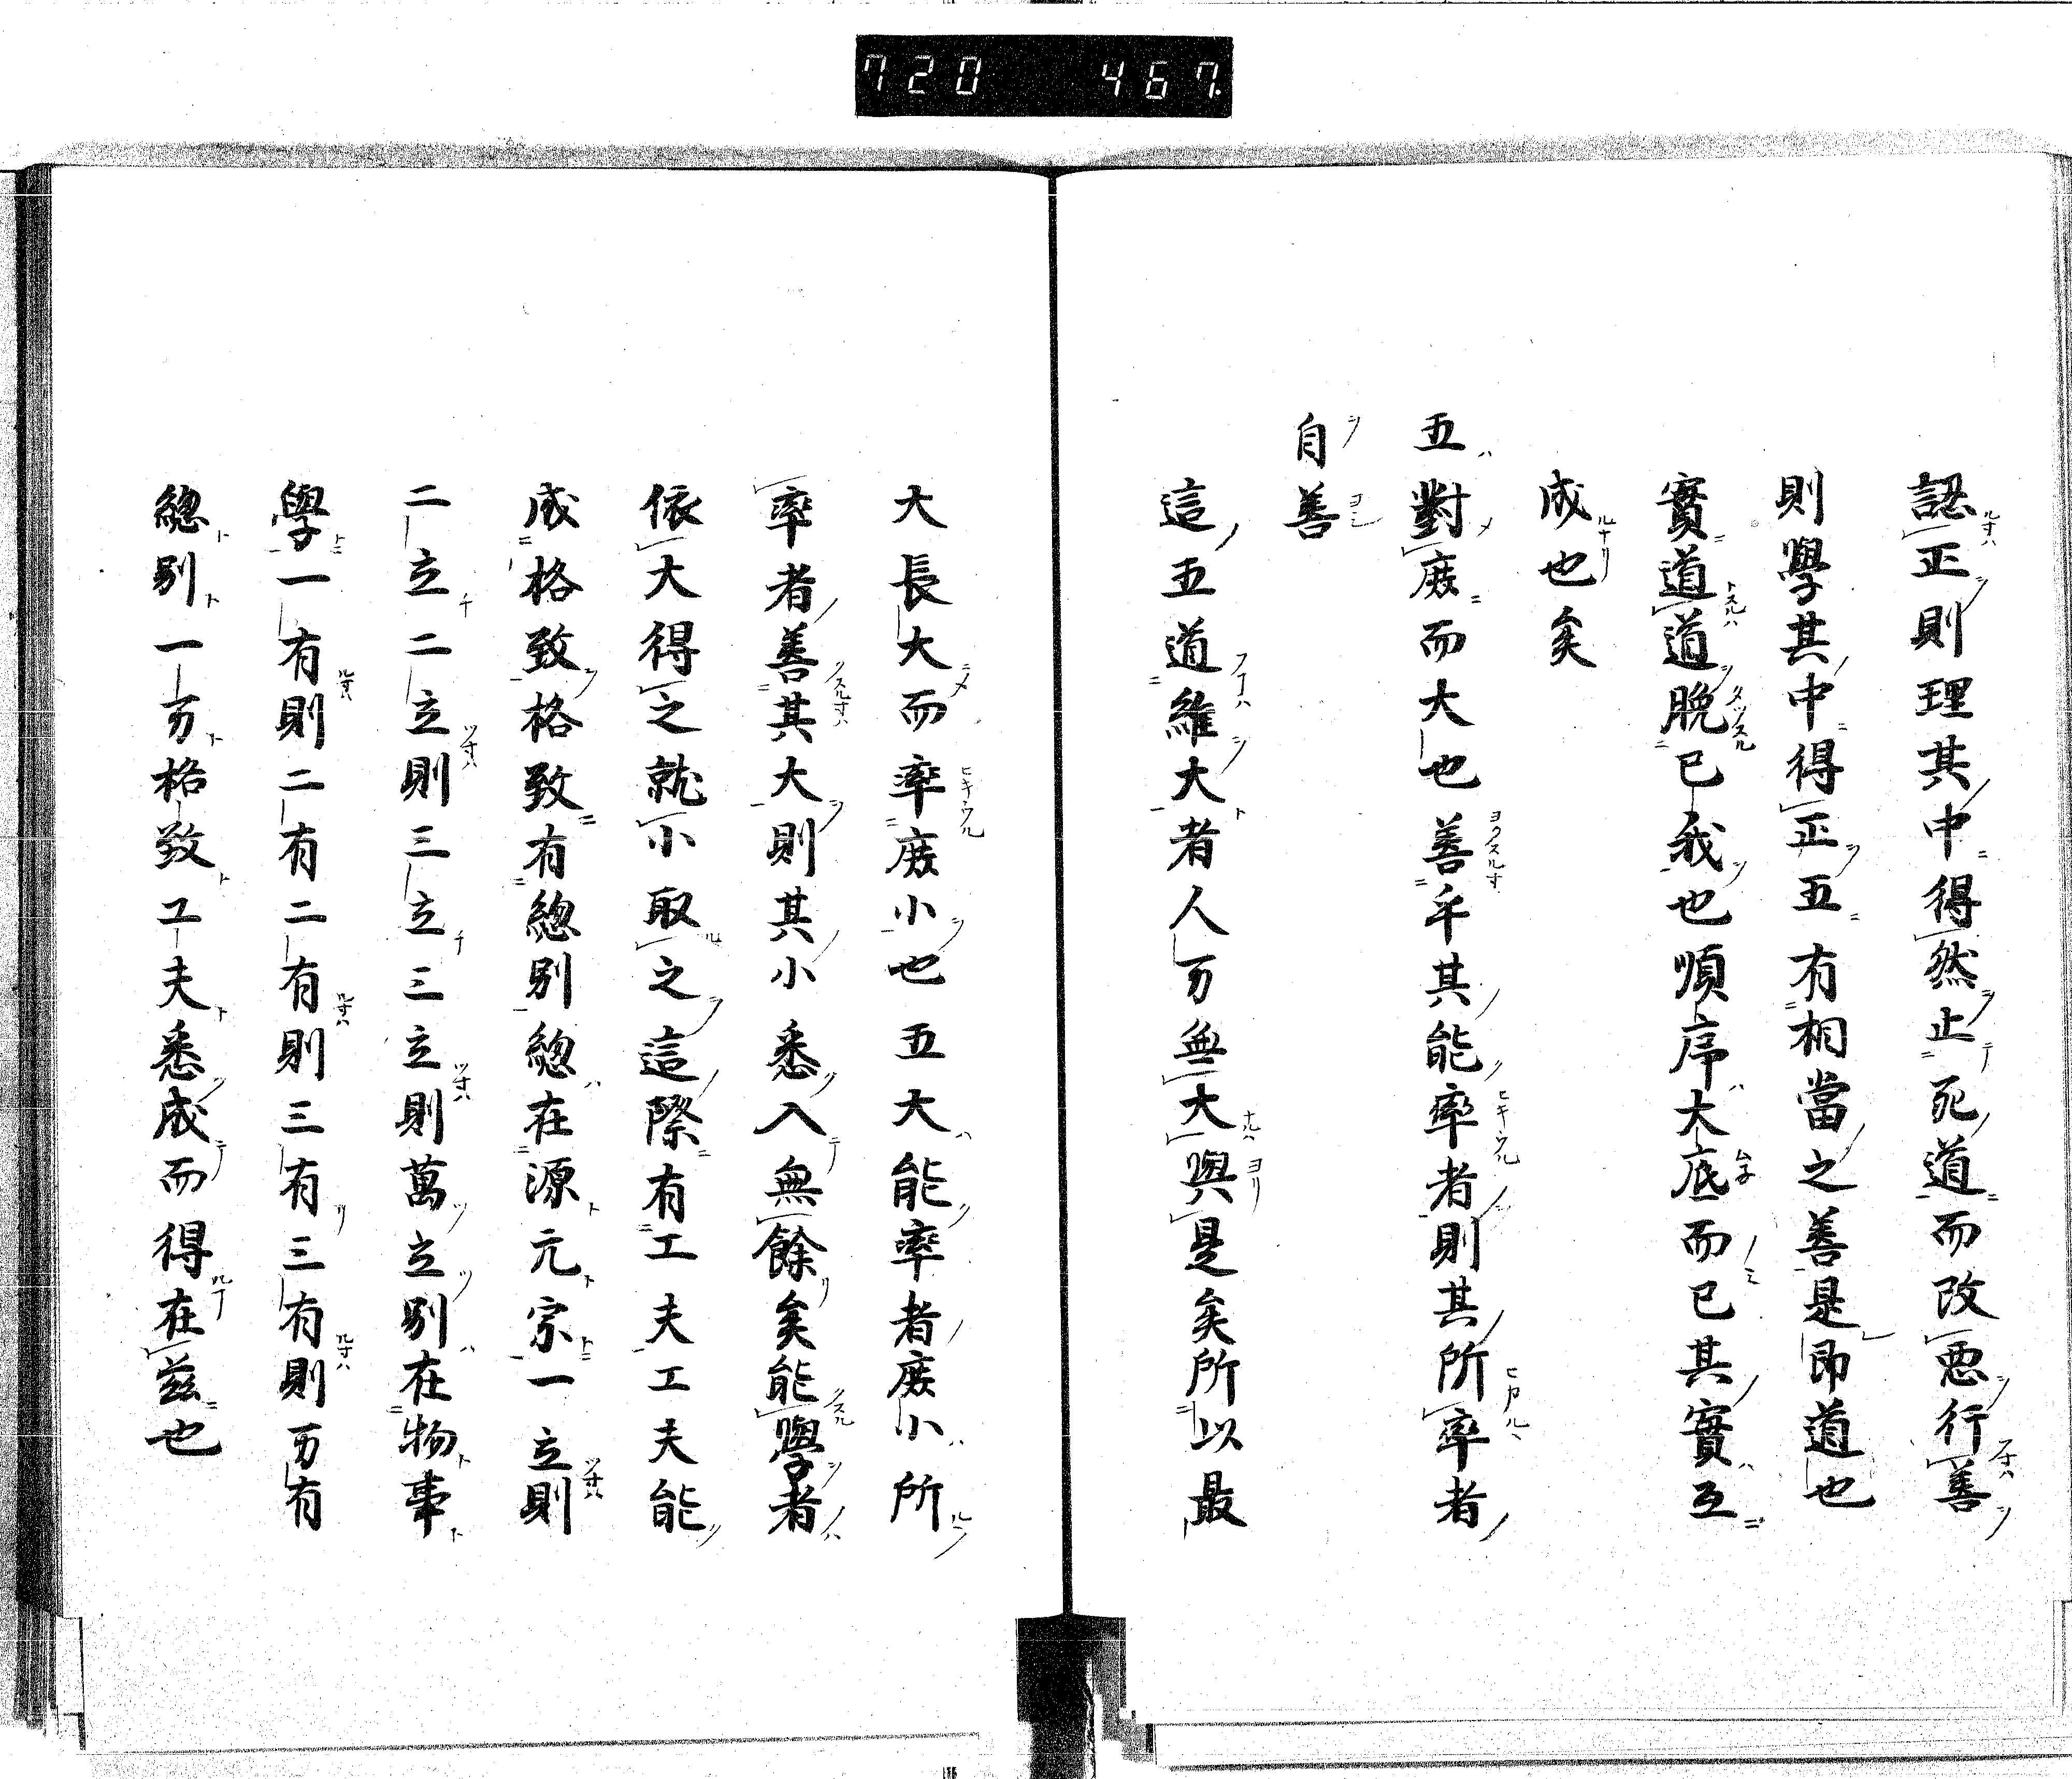 720 467
認正則理其中得然止死道而改悪行善
則學其中得正五有相當之善是即道也
實道道脱已我也順序大底而已其實互
成也矣
五對庻而大也善乎其能率者則其所率者
自善
這五道雖大者人万無大與是矣所以最
大長大而率庻小也五大能率者庻小所
率者善其大則其小悉入無餘矣能學者
依大得之就小取之這際有工夫工夫能
成格致格致有總別總在源元宗一立則
二立二立則三立三立則萬立別在物事
學一有則二有二有則三有三有則万有
總別一万格致工夫悉成而得在茲也